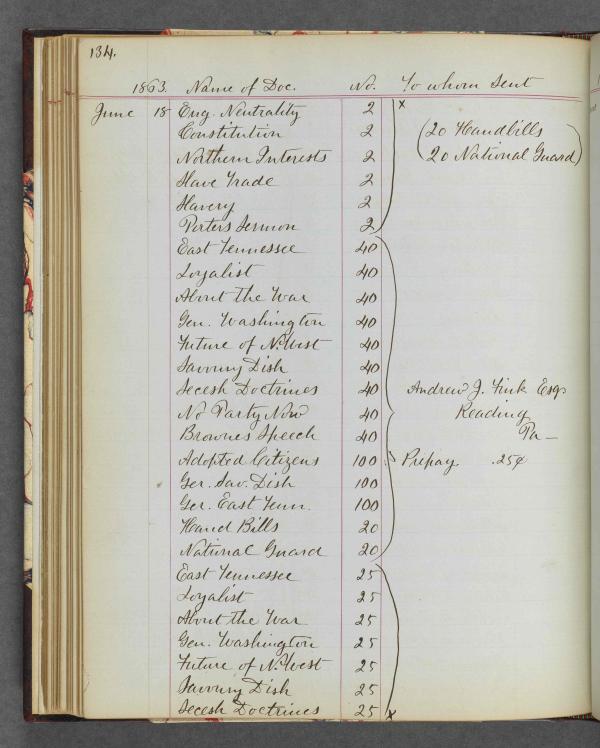 134.
1863. Name of Doc. No. To whom Sent
June 18 Eng. Neutrality 2 x
Constitution 2 (20 Handbills
Northern Interests 2 20 National Guard)
Slave Trade 2
Slavery 2
Porters Sermon 2
East Tennessee 40
Loyalist 40
About the War 40
Gen. Washington 40
Future of N.West 40
Savoury Dish 40
Secesh Doctrines 40 Andrew J. Fink Esq
No Party Now 40 Reading
Brownes Speech 40 Pa—
Adopted Citizens 100 Prepay .25¢
Ger. Sav. Dish 100
Ger. East Tenn. 100
Hand Bills 20
National Guard 20
East Tennessee 25
Loyalist 25
About the War 25
Gen. Washington 25
Future of N.West 25
Savoury Dish 25
Secesh Doctrines 25 x